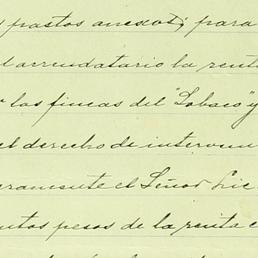 pastos anexos; para
el arrendatario la renta
las fincas del "Lobaco" y
el derecho de interven
eramente el Señor Lic
ntos pesos de la renta e